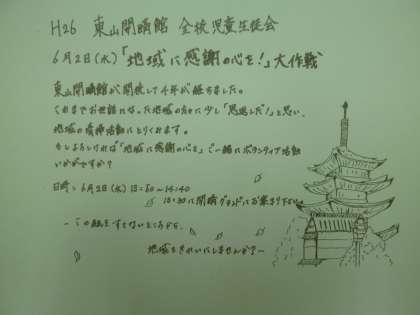 H26 東山開睛館 全校児童生徒会
6月2日(水)「地域に感謝の心を!」大作戦
東山開睛館が開校して4年が経ちました。
これまでお世話になった地域の方々に少し「恩返しだ!」と思い、
地域の清掃活動にとりくみます。
もしよろしければ「地域に感謝の心を」ご一緒にボランティア活動
いかがですか?
日時:6月2日(水)13:50〜14:40
13:30に開睛グランドにお集まり下さい。
〜この紙をすてないところから、
地域をきれいにしませんか?〜